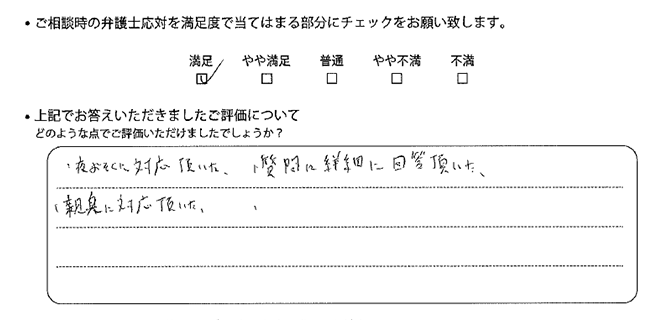 ・ご相談時の弁護士応対を満足度で当てはまる部分にチェックをお願い致します。
満足 やや満足 普通 やや不満 不満
・上記でお答えいただきましたご評価について
どのような点でご評価いただけましたでしょうか？
・夜おそくに対応頂いた、 ・質問に詳細に回答頂いた、
・親身に対応頂いた、 ・